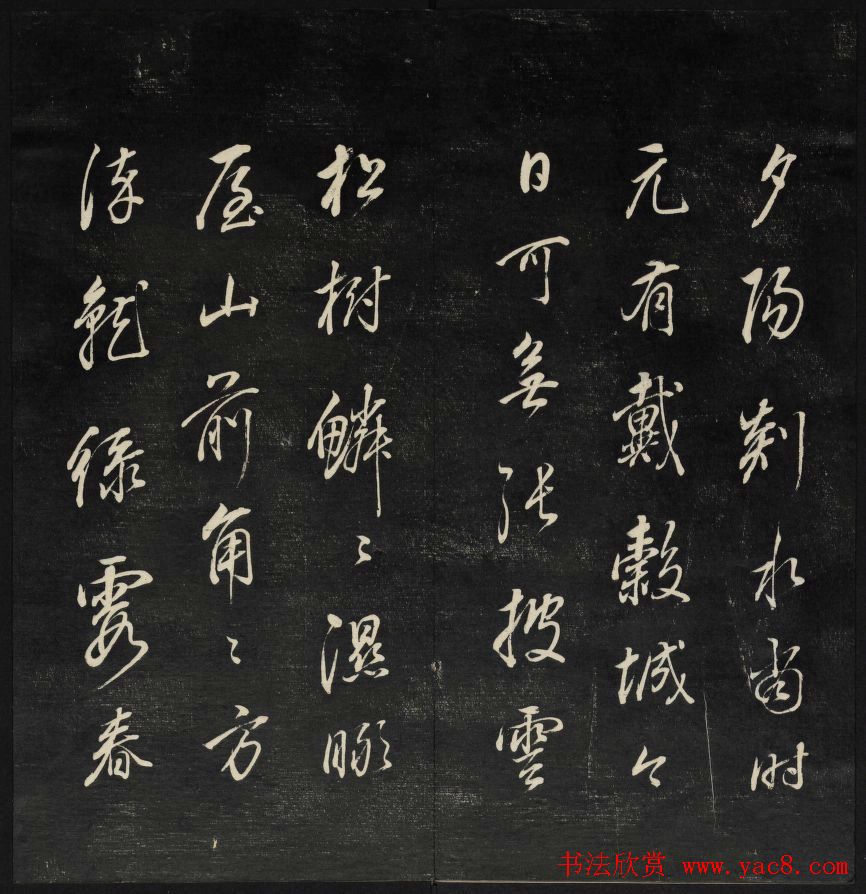 夕陽剡水當時
元有戴穀城今
日可無張披雲
松樹鱗〻濕瞰
屋山前角〻方
就綠霞春
书法欣赏 www.yac8.com